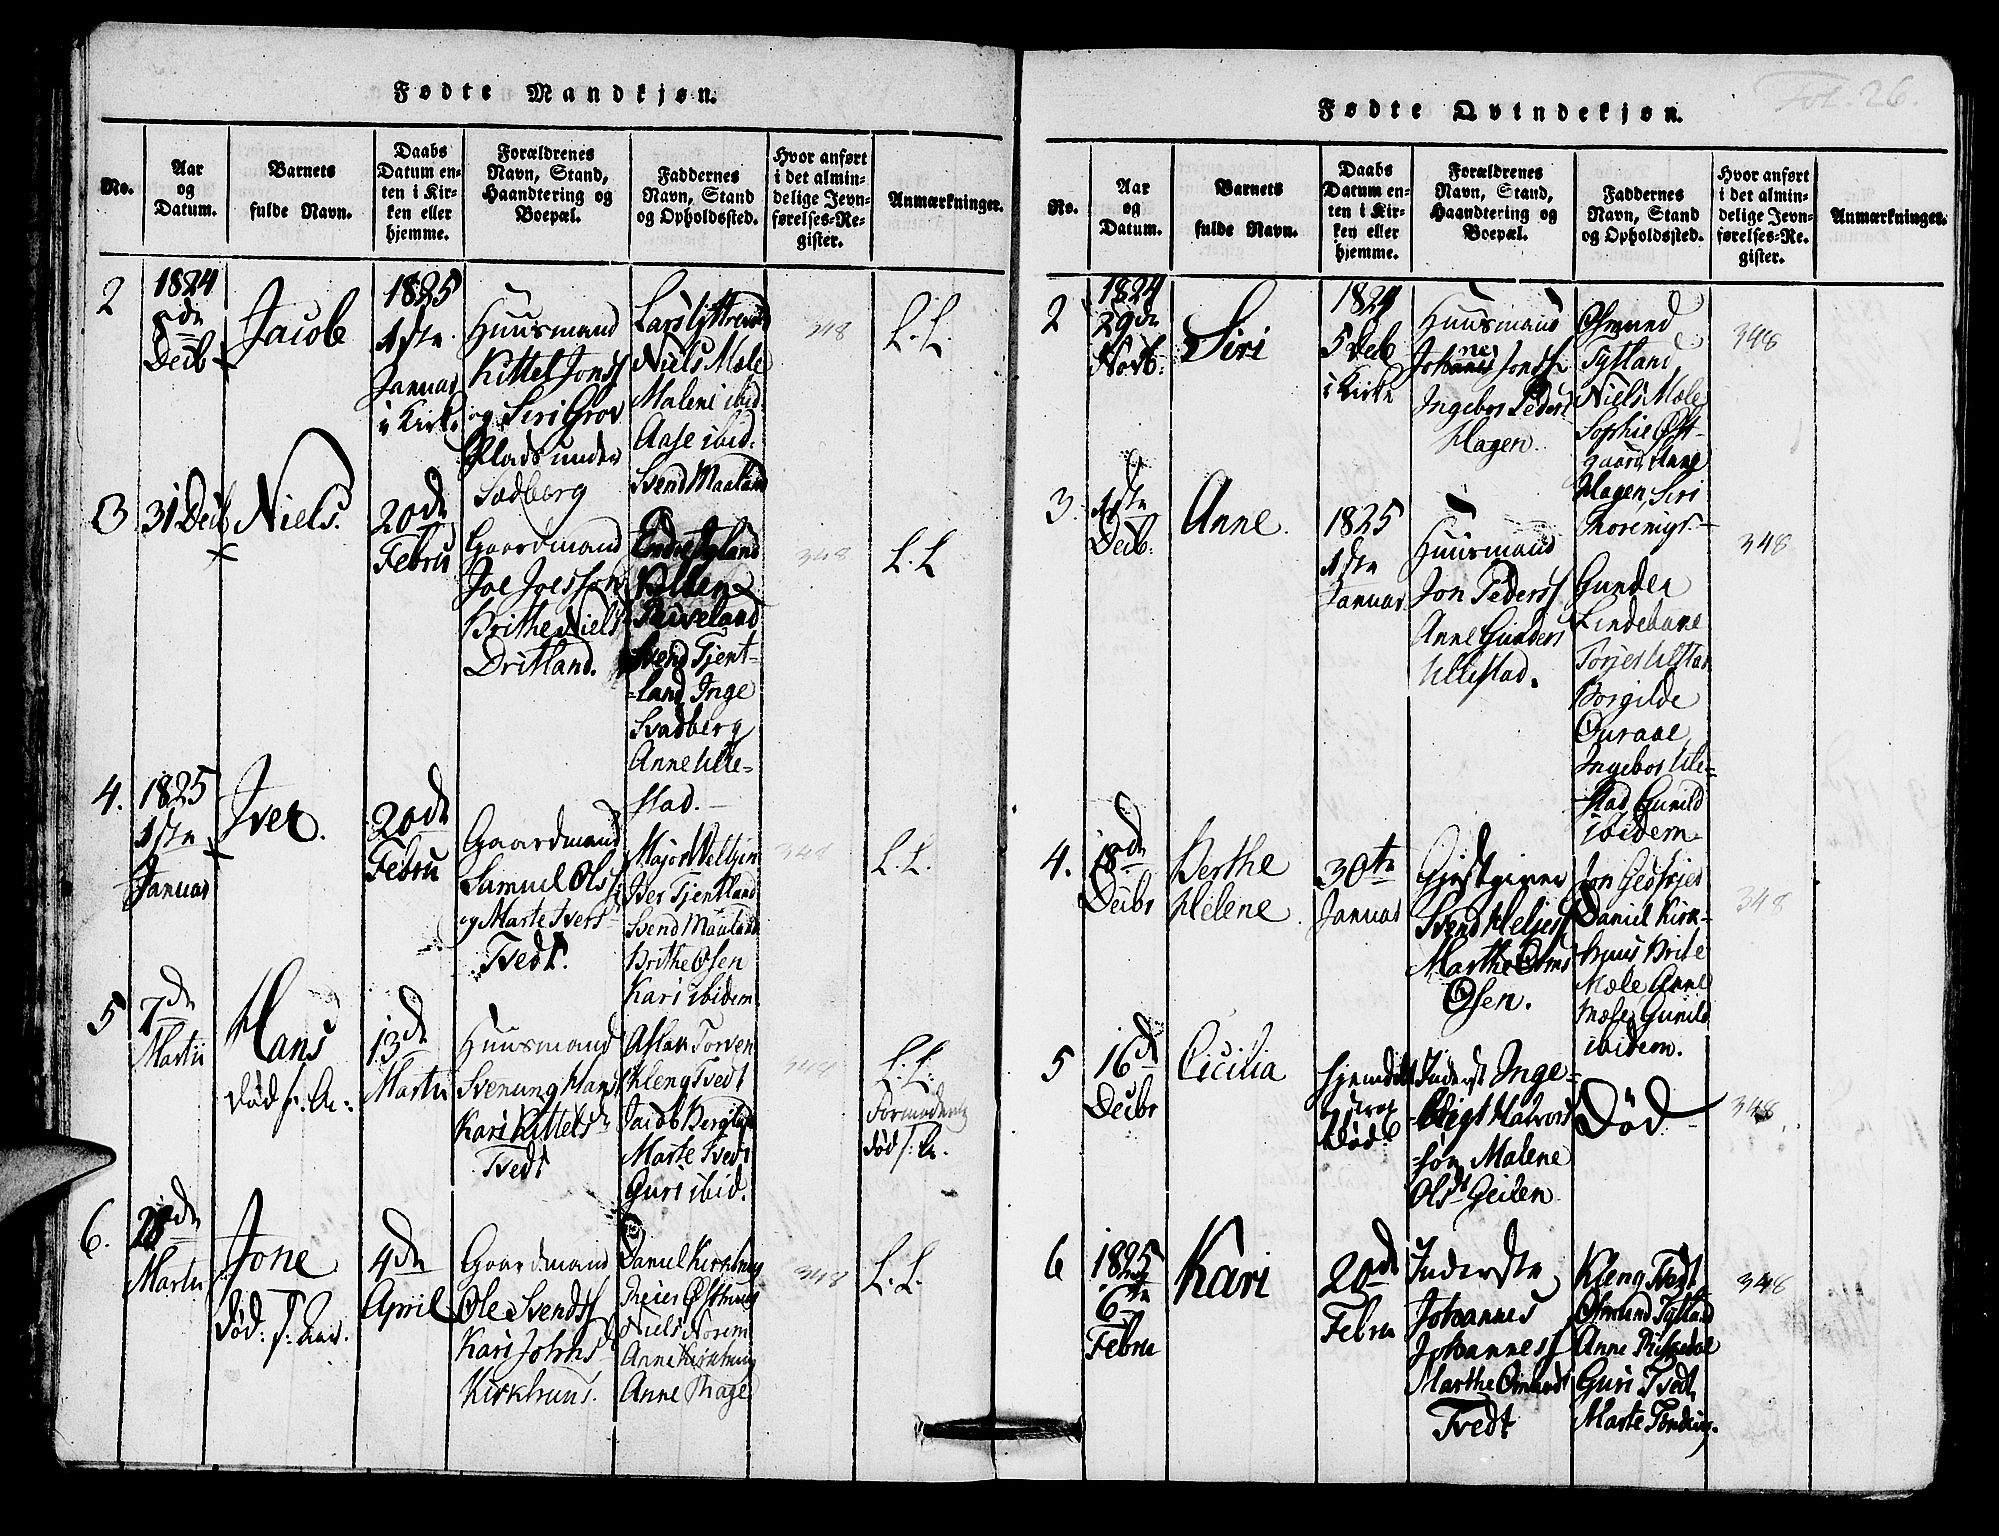 Fødte Mandkjøn.
No.
Aar
og
Datum.
Barnets
fulde Navn.
Daabs
Datum en-
ten i Kir-
ken eller
hjemme.
Forældrenes
Navn, Stand,
Haandtering og
Boepæl.
Faddernes
Navn, Stand
og Opholdssted.
Hvor anført
i det almin-
delige Jevn-
førelses-Re-
gister.
Anmærkninger.
2
1824
8de
Decb
Jacob
1825
1ste
Januar
i Kirk
Huusmand
Kittel Jonss
og Siri Grov
Plads under
Sadberg
Niels Mæle
Maleni ibid:
Aase ibid:
Svend Maaland
348
L. L.
3
31 Decb
Niels.
20de
Febru
Gaardmand
Joe Joesson
Brithe Niels
Dritland.
Svend Tjent-
land Inge
Svadberg
Anne Ulle-
stad.
348
L. L
4.
1825
1ste
Januar
Iver.
20de
Febru
Gaardmand
Samuel Olss
og Marte Ivers
Tvedt.
Iver Tjentland
Svend Maaland
Brithe Osen
Kari ibidem
348
L. L.
5
7de
Martii
Hans
død
13de
Martii
Huusmand
Svenung Hans
Kari Kittels
Tvedt
Aslak Torven
Kleng Tvedt
Jacob
Marte Tvedt
Guri ibid.
348
L. L.
død
6.
28de
Martii
Jone
død:
4de
April
Gaardmand
Ole Svends
Kari Johns
Kirkhuus.
Daniel Kirkhuus
Niels Norem
Anne Kirkhuus
Anne Hage
348
L. L.
Fol. 26.
Fødte Qvindekjøn.
No.
Aar
og
Datum.
Barnets
fulde Navn.
Daabs
Datum en-
ten i Kir-
ken eller
hjemme.
Forældrenes
Navn, Stand,
Haandtering og
Boepæl.
Faddernes
Navn, Stand
og Opholdssted.
Hvor anført
i det almin-
delige Jevn-
førelses-Re-
gister.
Anmærkninger.
2
1824
29de
Novb:
Siri
1824
5 Decb
i Kirke
Huusmand
Johannes Jonss
Ingebor Peders
Hagen.
Osmund
Tytland
Niels Mæle
Sophie Øst-
gaard Anne
Hagen, Siri
348
3.
1ste
Decb:
Anne
1825
1ste
Januar
Huusmand
Jon Pederss
Anne Gunders
Ullestad.
Gunder
Borgilde
Ouraae
Ingebor Ulle-
stad Gunild
ibidem
348
4.
18de
Decbr
Berthe
Helene
30te
Januar
Gjestgiver
Svend Heljess
Marthe
Osen.
Daniel Kirk-
huus Brite
Mæle Anne
Mæle Gunild
ibidem.
348
5
16de
Decbr
Cicilia
hjemdøbt
død
Inderst Inge-
Halvors
søn Malene
Ols Geilen
Død
348
6
1825
6te
Febru
Kari
20de
Febru
Inderste
Johannes
Johanness
Marthe
Tvedt
Kleng Tvedt
Osmund Tytland
Anne Riskedal
Guri Tvedt
Marte
348